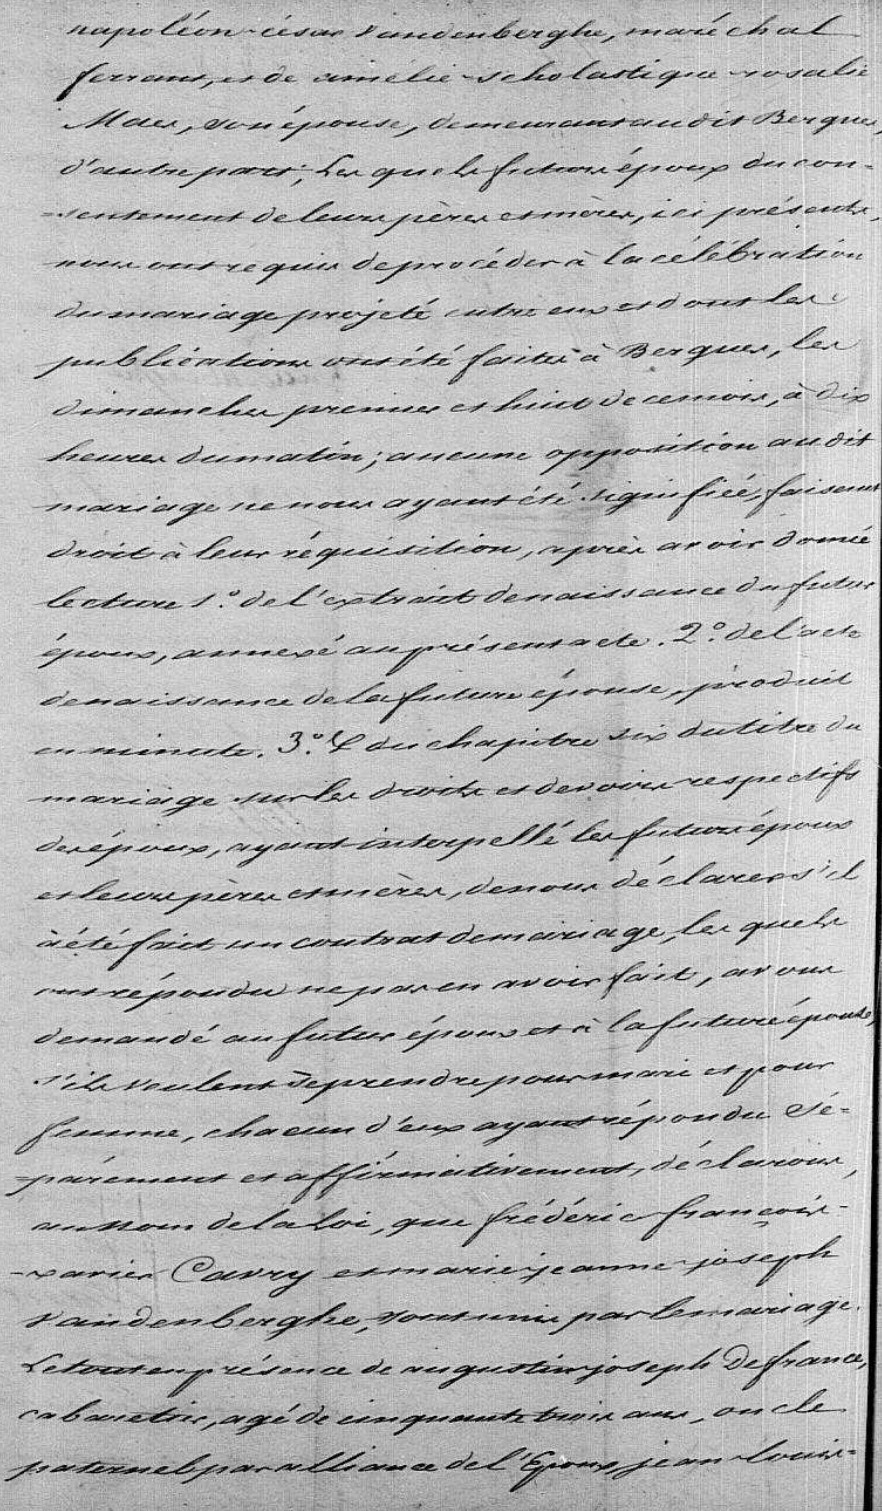 napoléon-césar Vandenberghe, maréchal
ferrant, et de amélie-scholastique-rosalie
Maes, son épouse, demeurant audit Bergues,
d'autre part; Lesquels futurs époux du con-
-sentement de leurs pères et mères, ici présents,
nous ont requis de procéder à la célébration
du mariage projeté entre eux et dont les
publications ont été faites à Bergues, les
dimanches premier et huit de ce mois, à dix
heures du matin; aucune opposition audit
mariage ne nous ayant été signifiée, faisant
droit à leur réquisition, après avoir donné
lecture 1.° de l'extrait de naissance du futur
époux, annexé au présent acte. 2.° de l'acte
de naissance de la future épouse, produit
en minute. 3.° & du chapitre six du titre du
mariage sur les droits et devoirs respectifs
des époux, ayant interpellé les futurs époux
et leurs pères et mères, de nous déclarer s'il
à été fait un contrat de mariage, les quels
ont répondu ne pas en avoir fait, avons
demandé au futur époux et à la future épouse,
s'ils veulent se prendre pour mari et pour
femme, chacun d'eux ayant répondu sé-
-parément et affirmativement, déclarons,
au nom de la loi, que frédéric-françois-
-xavier Cavry et marie-jeanne-joseph
Vandenberghe, sont unis par le mariage.
Le tout en présence de augustin-joseph Defrance,
cabaretier, agé de cinquante trois ans, oncle
paternel par alliance de l'Epoux, jean-louis-